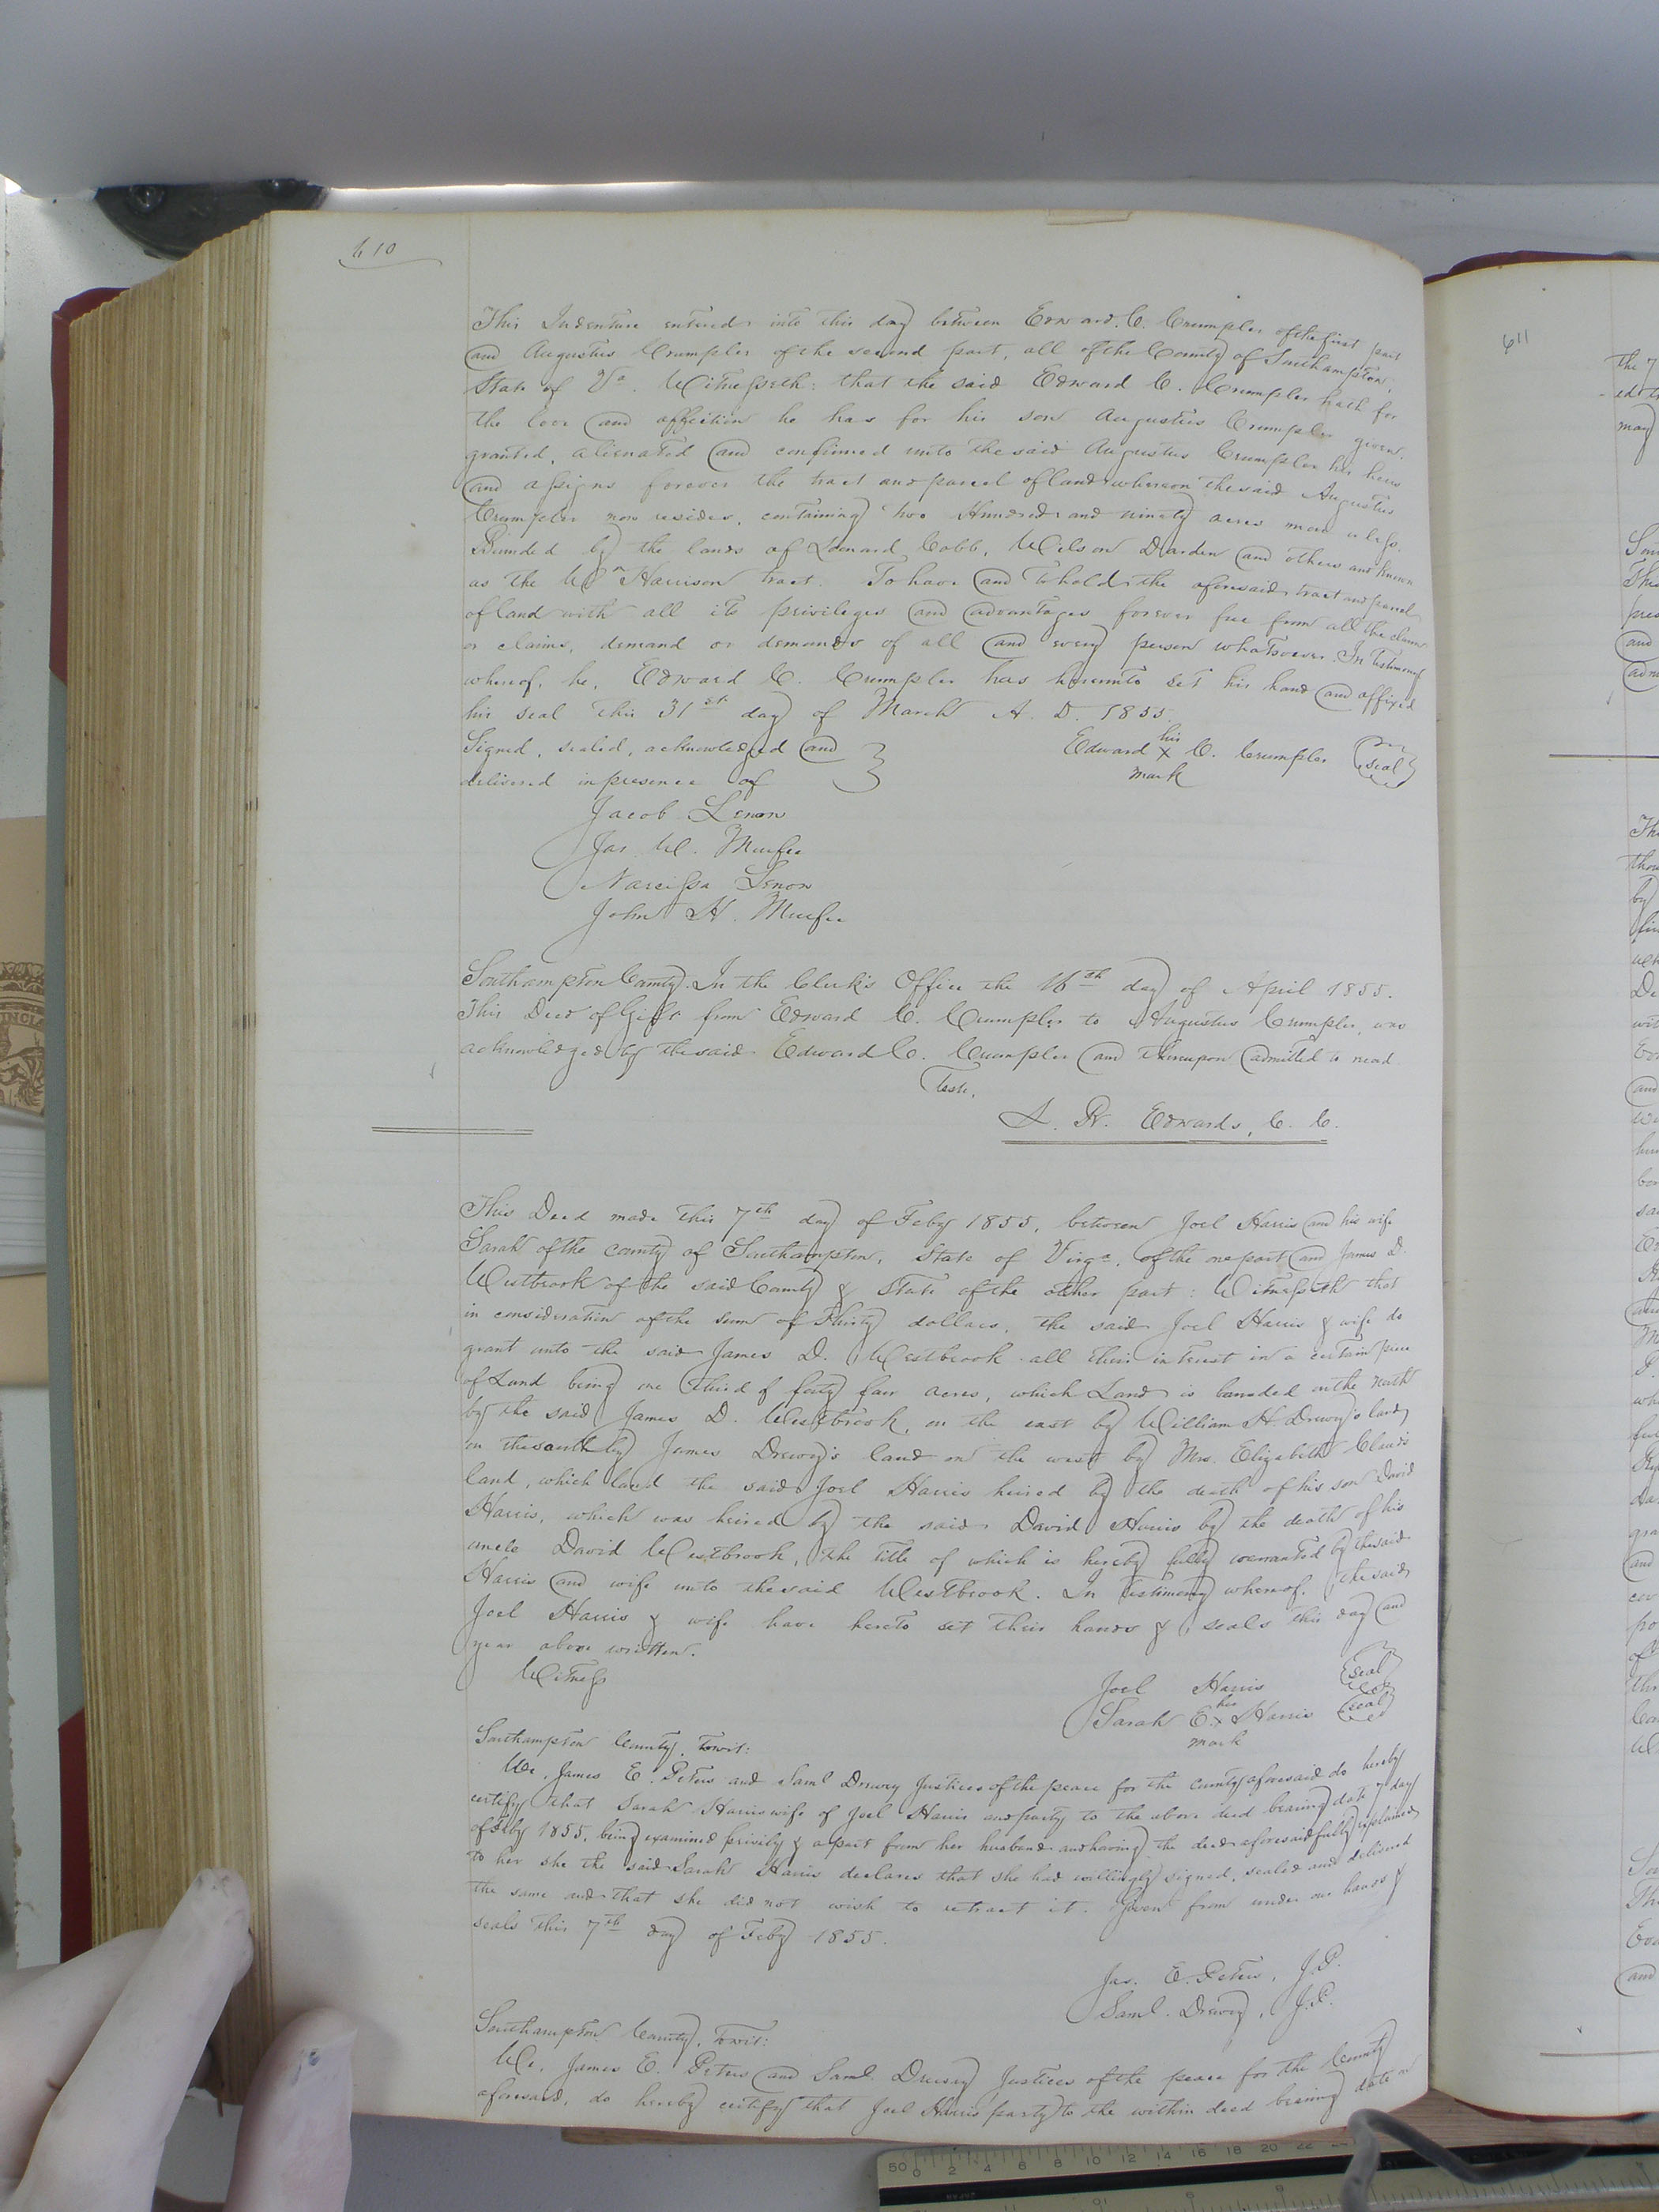 610
This Indenture entered into this day between Edward C. Crumpler of the first part
and Augustus Crumpler of the second part, all of the County of Southampton,
State of Va. Witnesseth: that the said Edward C. Crumpler hath for
the love and affection he has for his son Augustus Crumpler given,
granted, alienated and confirmed unto the said Augustus Crumpler his heirs
and assigns forever the tract and parcel of land whereon the said Augustus
Crumpler now resides, containing two Hundred and ninety acres more or less.
Bounded by the lands of Leonard Cobb, Wilson Darden and others and known
as the Wm Harrison tract. To have and to hold the aforesaid tract and parcel
of land with all its privileges and advantages forever free from all the claim
or claims, demand or demands of all and every person whatsoever. In testimony
whereof, he, Edward C. Crumpler has hereunto set his hand and affixed
his seal this 31st day of March A. D. 1855.
Signed, sealed, acknowledged and } Edward his x mark C. Crumpler (seal)
delivered in presence of
Jacob Lenow
Jas. W. Murfee
Narcissa Lenow
John H. Murfee
Southampton County. In the Clerk's Office the 16th day of April 1855.
This Deed of Gift from Edward C. Crumpler to Augustus Crumpler, was
acknowledged by the said Edward C. Crumpler and thereupon admitted to record.
Teste,
L. R. Edwards, C. C.
This Deed made this 7th day of Feby 1855, between Joel Harris and his wife
Sarah of the county of Southampton, State of Virga, of the one part and James D.
Westbrook of the said County & State of the other part: Witnesseth that
in consideration of the sum of Thirty dollars, the said Joel Harris & wife do
grant unto the said James D. Westbrook all their interest in a certain piece
of Land being one third of forty four acres, which Land is bounded on the north
by the said James D. Westbrook, on the east by William H. Drewry's land
on the south by James Drewry's land on the west by Mrs. Elizabeth Claud's
land, which land the said Joel Harris heired by the death of his son David
Harris, which was heired by the said David Harris by the death of his
uncle David Westbrook, the title of which is hereby fully warranted by the said
Harris and wife unto the said Westbrook. In testimony whereof, the said
Joel Harris & wife have hereto set their hands & seals this day and
year above written.
Witness
Joel Harris (seal)
Sarah E. her x mark Harris (seal)
Southampton County, towit:
We, James E. Peters and Saml Drewry Justices of the peace for the county aforesaid do hereby
certify that Sarah Harris wife of Joel Harris and party to the above deed bearing date 7 day
of Feby 1855, being examined privily & apart from her husband and having the deed aforesaid fully explained
to her she the said Sarah Harris declares that she had willingly signed, sealed and delivered
the same and that she did not wish to retract it. Given from under our hands &
seals this 7th day of Feby 1855.
Jas. E. Peters, J.P.
Saml. Drewry, J.P.
Southampton County, towit:
We, James E. Peters and Saml. Drewry Justices of the peace for the County
aforesaid, do hereby certify that Joel Harris party to the within deed bearing date
611